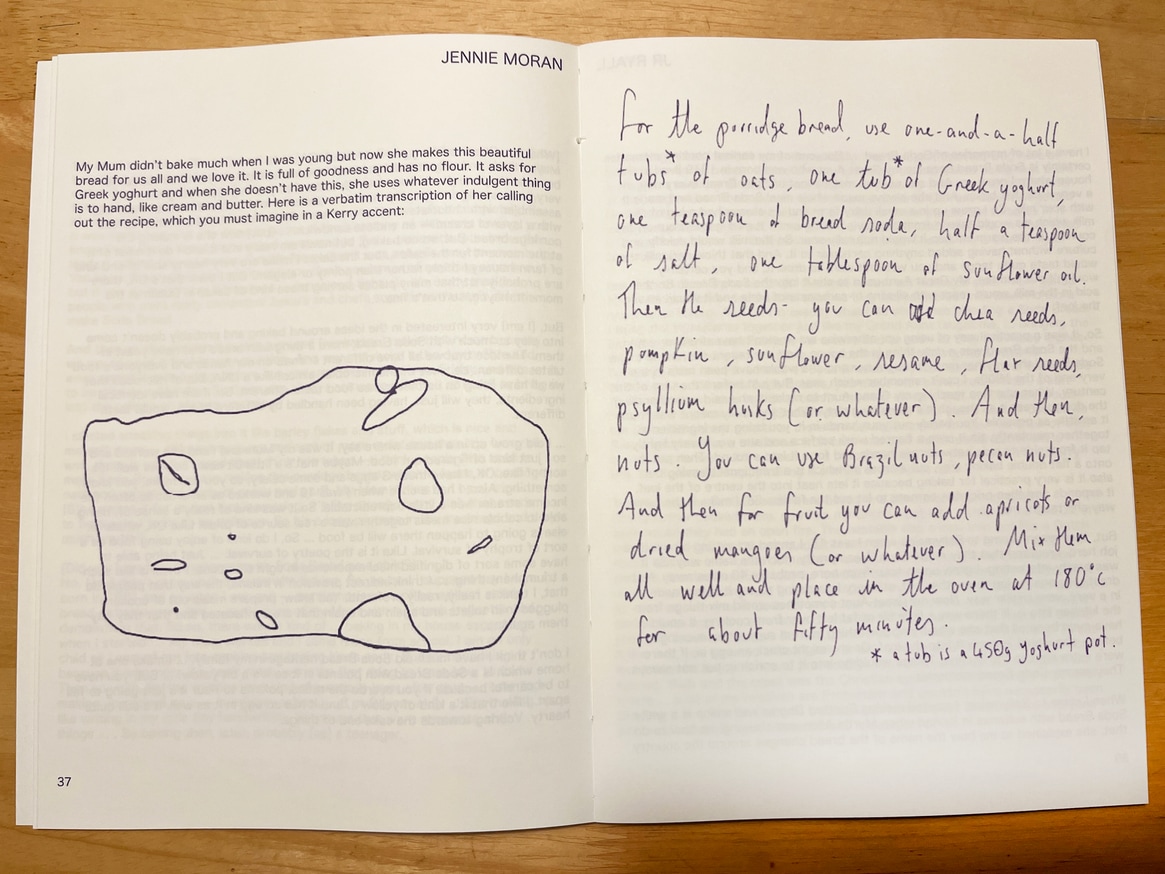 JENNIE MORAN
My Mum didn't bake much when I was young but now she makes this beautiful
bread for us all and we love it. It is full of goodness and has no flour. It asks for
Greek yoghurt and when she doesn't have this, she uses whatever indulgent thing
is to hand, like cream and butter. Here is a verbatim transcription of her calling
out the recipe, which you must imagine in a Kerry accent:
37
For the porridge bread, use one-and-a-half
tubs* of oats, one tub* of Greek yoghurt,
one teaspoon of bread soda, half a teaspoon
of salt, one tablespoon of sunflower oil.
Then the seeds- you can add chia seeds,
pumpkin, sunflower, sesame, flax seeds,
psyllium husks (or whatever). And then,
nuts. You can use Brazil nuts, pecan nuts.
And then for fruit you can add apricots or
dried mangoes (or whatever). Mix them
all well and place in the oven at 180°c
for about fifty minutes.
* a tub is a 450g yoghurt pot.